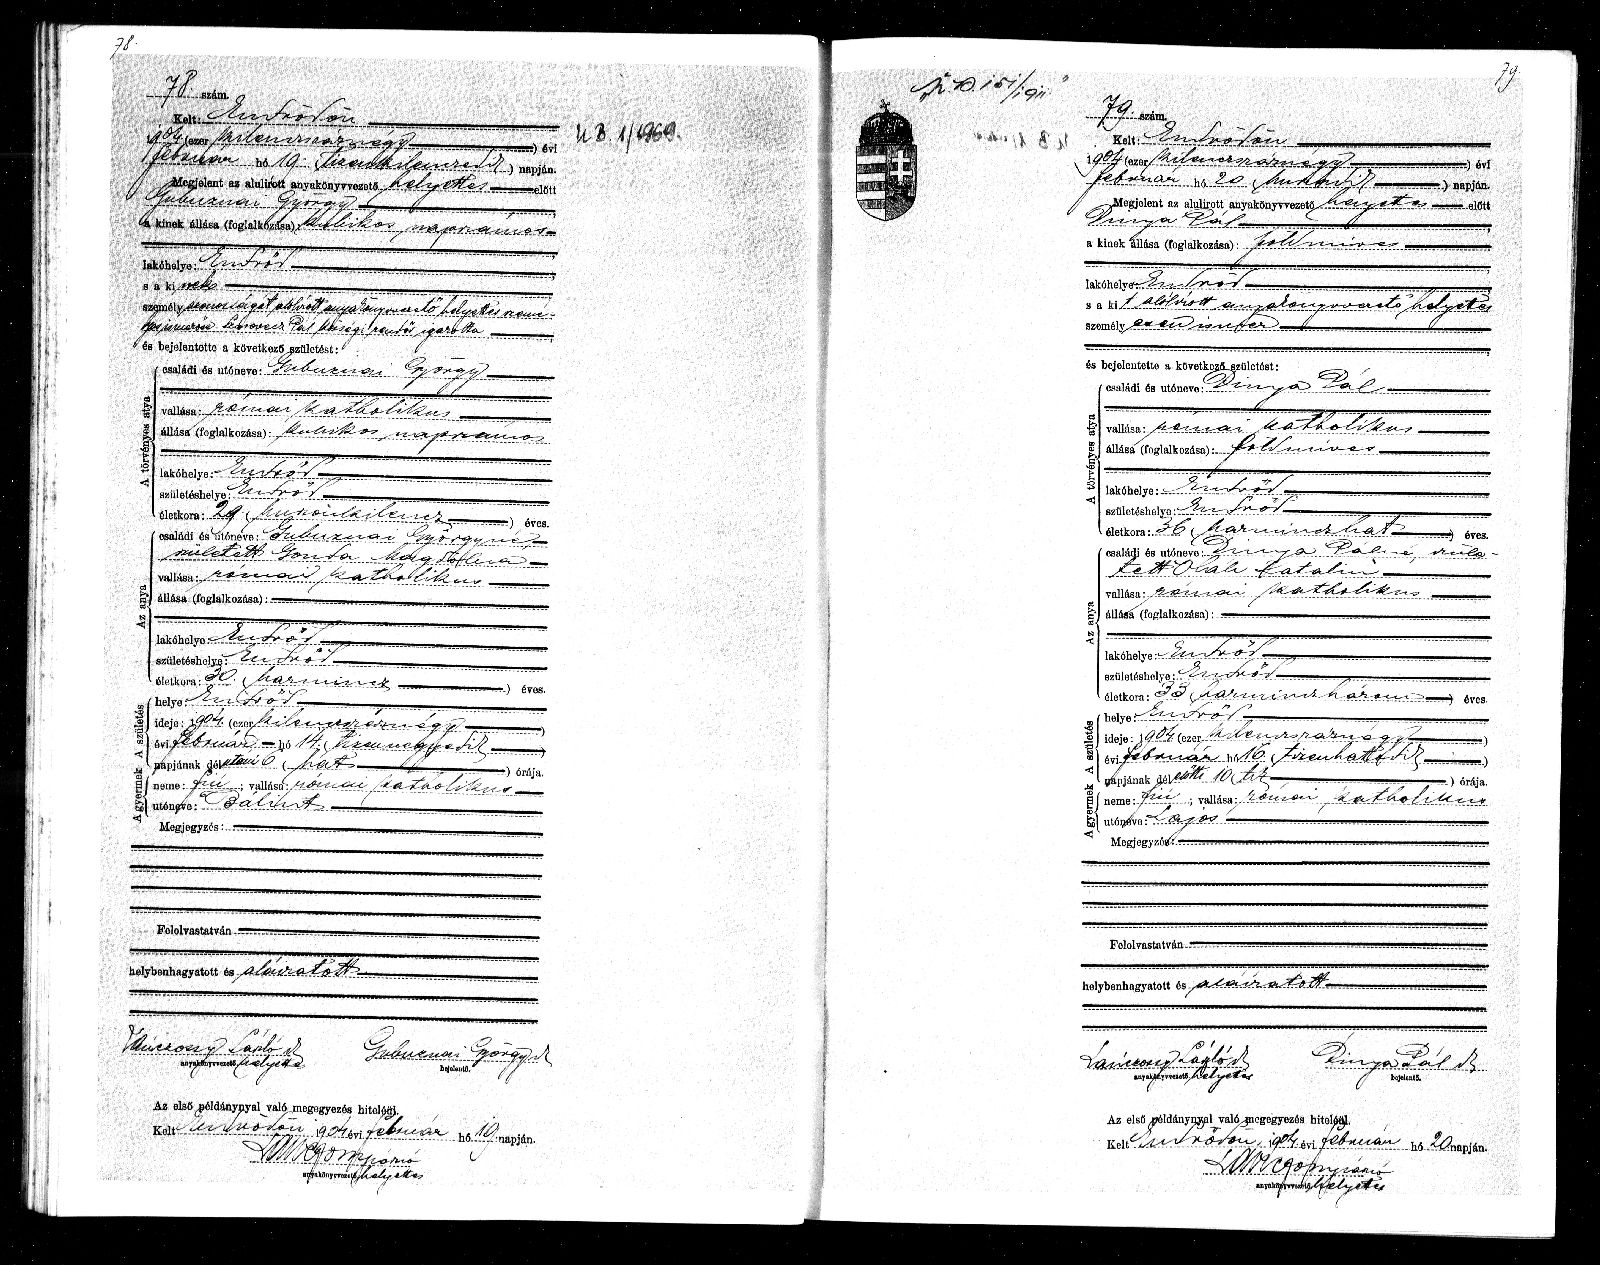 78.
78. szám.
Kelt: Endrődön
1904 (ezer kilenczszáznégy ) évi
február hó 19. (tizenkilenczedik ) napján.
Megjelent az alulirott anyakönyvvezető helyettes előtt
Gubuznai György
a kinek állása (foglalkozása): kubikos, napszámos
lakóhelye: Endrőd
s a kinek
személyazonosságát alólirott anyakönyvvezető helyettes
Pál községi rendőr igazolta
és bejelentette a következő születést:
A törvényes atya
családi és utóneve: Gubuznai György
vallása: római katholikus
állása (foglalkozása): kubikos, napszámos
lakóhelye: Endrőd
születéshelye: Endrőd
életkora: 29 (huszonkilencz ) éves.
Az anya
családi és utóneve: Gubuznai Györgyné,
született Gonda Magdolna
vallása: római katholikus
állása (foglalkozása):
lakóhelye: Endrőd
születéshelye: Endrőd
életkora: 30 (harmincz ) éves.
A gyermek A születés
helye: Endrőd
ideje: 1904. (ezer kilenczszáznégy )
évi február hó 14. (tizennegyedik )
napjának délutáni 6 (hat ) órája.
neme: fiú ; vallása: római katholikus
utóneve: Bálint
Megjegyzés:
Felolvastatván
helybenhagyatott és aláiratott
Lánczony László sk Gubuznai György sk
anyakönyvvezető helyettes bejelentő.
Az első példánynyal való megegyezés hiteléül.
Kelt Endrődön, 1904 évi február hó 19 napján.
anyakönyvvezető helyettes
U B. 1/1969.
151/1911
79
79. szám.
Kelt: Endrődön
1904 (ezer kilenczszáznégy ) évi
február hó 20 (huszadik ) napján.
Megjelent az alulirott anyakönyvvezető helyettes előtt
Dinya Pál
a kinek állása (foglalkozása): földmives
lakóhelye: Endrőd
s a kit alólirott anyakönyvvezető helyettes
személyesen ismer
és bejelentette a következő születést:
A törvényes atya
családi és utóneve: Dinya Pál
vallása: római katholikus
állása (foglalkozása): földmives
lakóhelye: Endrőd
születéshelye: Endrőd
életkora: 36 (harminczhat ) éves.
Az anya
családi és utóneve: Dinya Pálné, szüle-
tett Oláh Katalin
vallása: római katholikus
állása (foglalkozása):
lakóhelye: Endrőd
születéshelye: Endrőd
életkora: 33 (harminczhárom ) éves.
A gyermek A születés
helye: Endrőd
ideje: 1904 (ezer kilenczszáznégy )
évi február hó 16. (tizenhatodik )
napjának délelőtti 10 (tiz ) órája.
neme: fiú ; vallása: római katholikus
utóneve: Lajos
Megjegyzés:
Felolvastatván
helybenhagyatott és aláiratott
Lánczony László sk Dinya Pál sk
anyakönyvvezető helyettes bejelentő.
Az első példánynyal való megegyezés hiteléül.
Kelt Endrődön, 1904 évi február hó 20 napján.
anyakönyvvezető helyettes